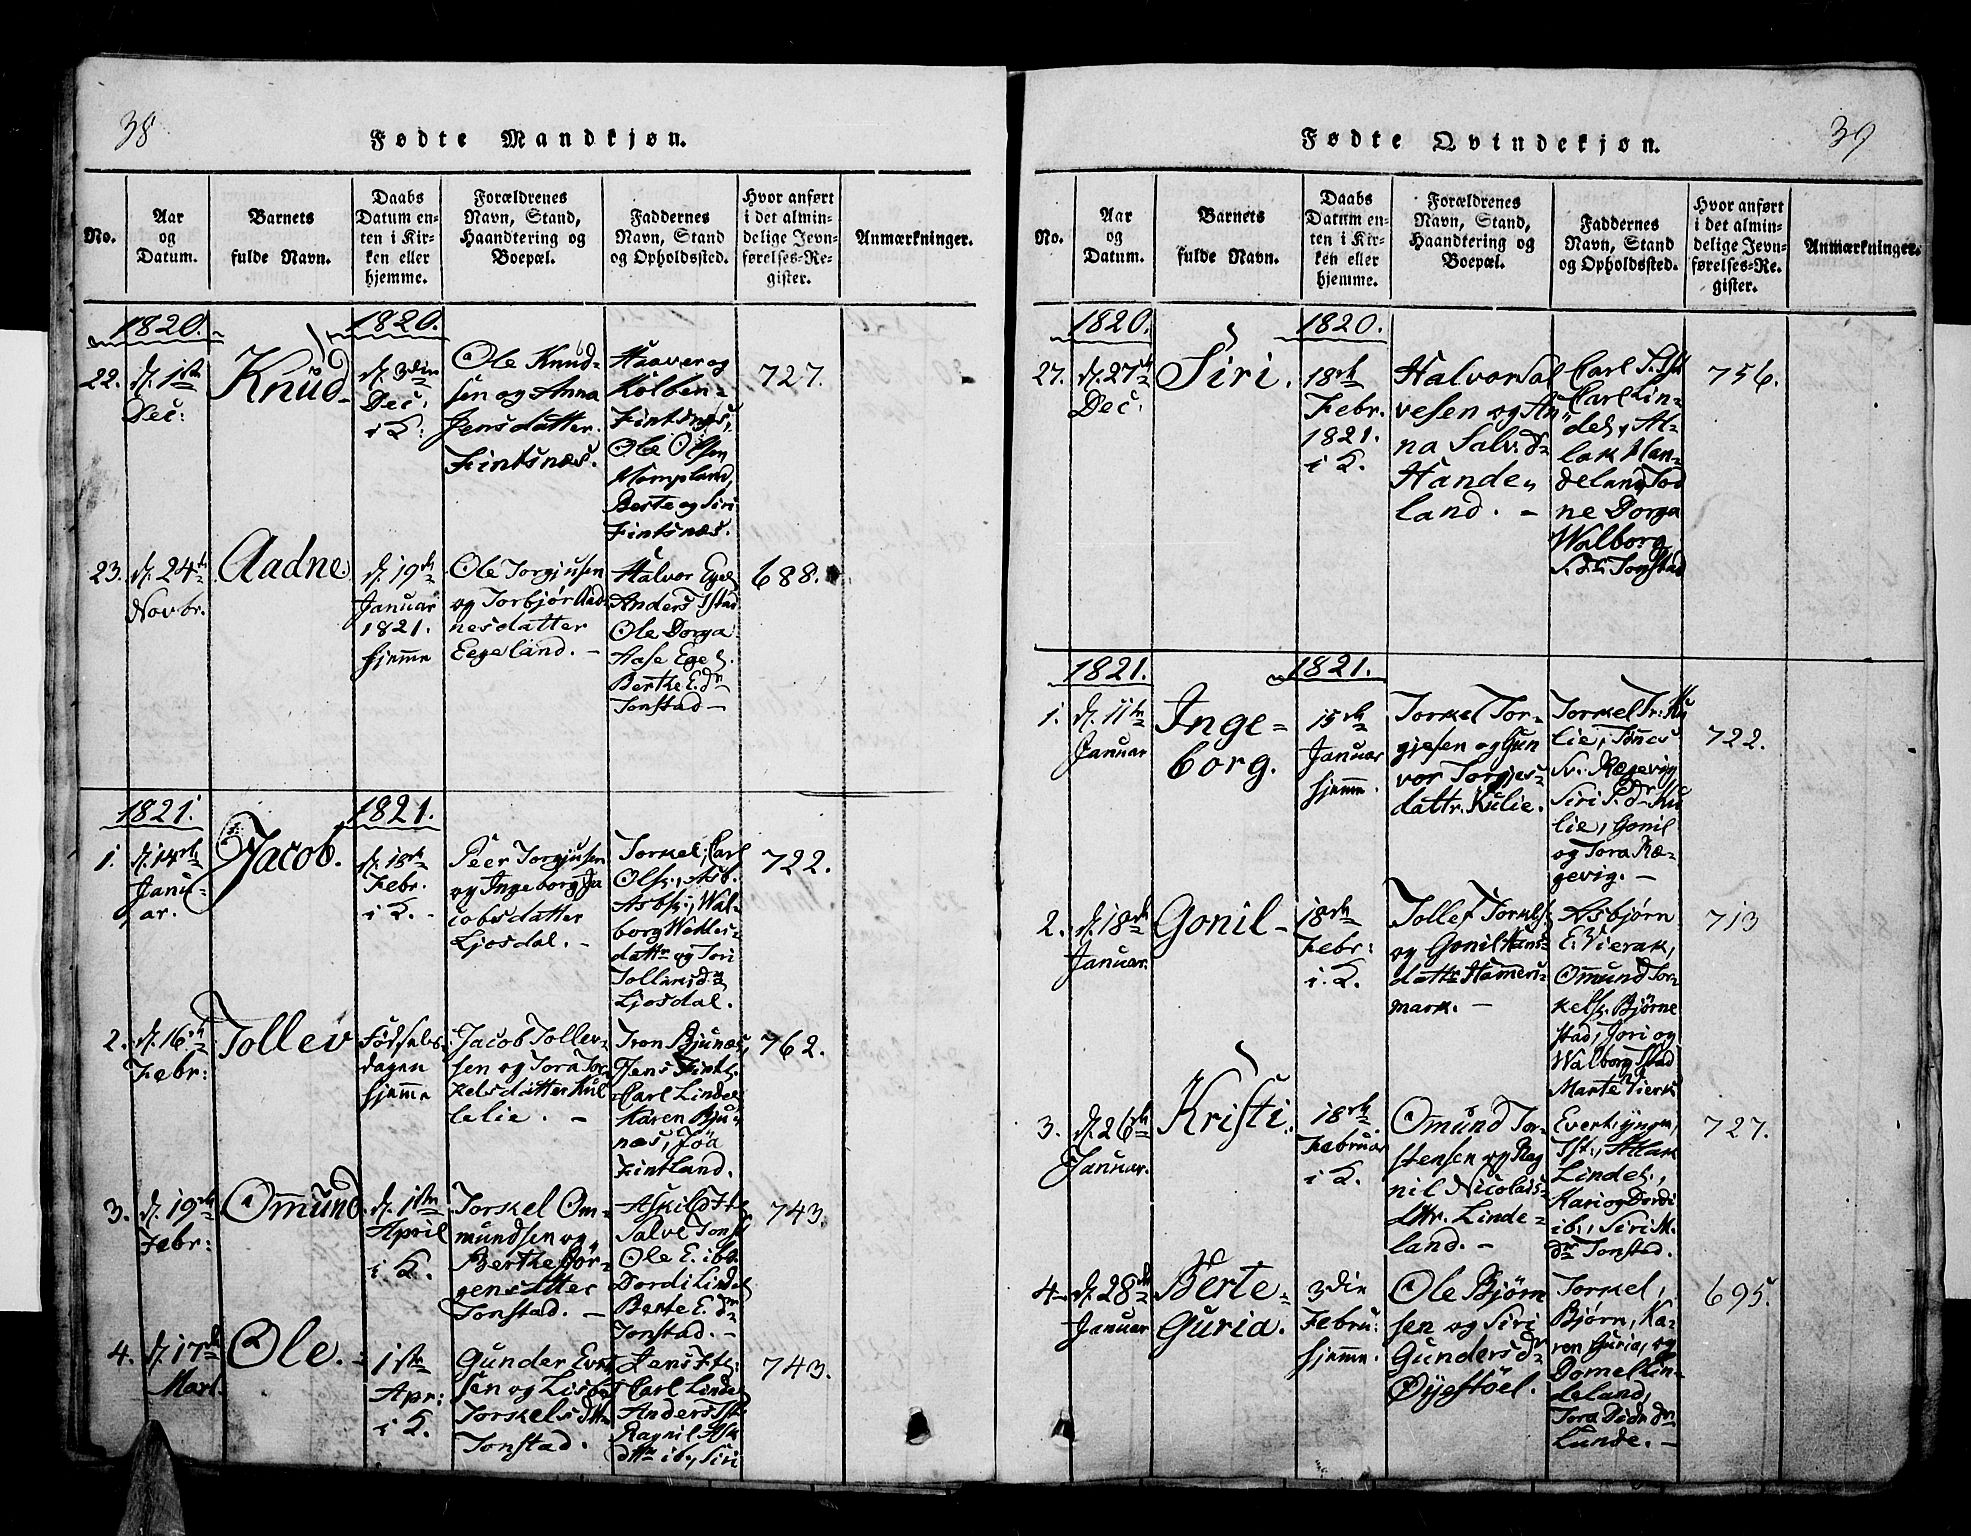 38
Fødte Mandkjøn.
No.
Aar
og
Datum.
Barnets
fulde Navn.
Daabs
Datum en-
ten i Kir-
ken eller
hjemme.
Forældrenes
Navn, Stand,
Haandtering og
Boepæl.
Faddernes
Navn, Stand
og Opholdssted.
Hvor anført
i det almin-
delige Jevn-
førelses-Re-
gister.
Anmærkninger.
1820.
1820.
22.
d. 1ste
Dec:
Knud
d. 3die
Dec:
i K:
Ole Knud-
sen og Anna
Jensdatter.
Fintsnæs.
Haaver og
Kolben-
Fintsnæs,
Ole Olsen
Mompland,
Berte og Siri
Fintsnæs.
727.
23.
d. 24de
Novbr.
Aadne.
d. 19de
Januar
1821.
hjemme
Ole Torgjusen
og Torbjør Aad-
nesdatter
Eegeland. -
Halvor Egel.
Anders Tstad
Ole Dorga
Aase Egel.
Berthe E.dr
Tonstad -
688.
1821.
1821.
1.
d. 14de
Janu-
ar.
Jacob.
d. 18de
Febr.
i K. -
Peer Torgjusen
og Ingeborg Ja
cobsdatter
Ljosdal. -
Torkel, Carl
Ols:, Asb.
Asbs:, Wal-
borg Wetles-
datter og Tori
Tollansd:
Ljosdal.
722.
2.
d. 16de
Febr:
Tollev
Fødsels-
dagen
hjemme
Jacob Tollev-
sen og Tora Tor-
kelsdatter Kul
lelie. -
Tron Bjunæs,
Jens Fintl.
Carl Lindel
Karen Bju-
næs, Jøa
Fintland.
762.
3.
d. 19de
Febr:
Omund
d. 1ste
April
i K.
Torkel Om-
mundsen og
Berthe Jør-
gensdtter
Tonstad. -
Askild Ftl.
Salve Tonst
Ole E. ibd.
Dordi Lindel
Berte E. dr
Tonstad. -
743.
4.
d. 17de
Mart.
Ole. -
1ste
Apr:
i K.
Gunder Evert
sen og Lisbet
Torkelsdtt.
Tonstad.
Jens Ftl.
Carl Lindel
Anders Tst.
Ragnil Ask
dttr ib, Siri
743.
39
Fødte Qvindekjøn.
No.
Aar
og
Datum.
Barnets
fulde Navn.
Daabs
Datum en-
ten i Kir-
ken eller
hjemme.
Forældrenes
Navn, Stand,
Haandtering og
Boepæl.
Faddernes
Navn, Stand
og Opholdssted.
Hvor anført
i det almin-
delige Jevn-
førelses-Re-
gister.
Anmærkninger.
1820.
1820.
27.
d. 27de
Dec.
Siri.
18de
Febr.
1821.
i K.
Halvor Sal
vesen og An-
na Salv.d.
Hande-
land. -
Carl S. Tst
Carl Lin-
del, At-
lak Han-
deland, Tod
ne Dorga
Walborg
S.d. Tonstad
756.
1821.
1821.
1.
d. 11te
Januar
Inge-
borg.
15de
Januar
hjemme.
Torkel Tor-
gjesen og Gun
vor Torgjes-
dattr. Kulie.
Torkel Tr: Ku
lie, Tønes
Sv: Rægevig,
Siri S.dr Ku
lie, Gonil
og Tora Ræ-
gevig. -
722.
2.
d. 18de
Januar.
Gonil -
18de
Febr:
i K.
Tollef Torkels:
og Gonil Hans-
dattr Hameri-
mark. -
Asbjørn
E. Vierak,
Omund Tor-
kels. Bjørne
stad, Jori og
Walborg Tstad
Marte Vierk
713
3.
d. 26de
Januar.
Kristi.
18de
Februar
i K.
Omund Tor-
stensen og Rag
nil Nicolais-
dttr. Linde-
land. -
Evert yngre,
Tst:, Atlak
Lindel.,
Kari og Dordi
ib:, Siri M.
dr Tonstad.
727.
4.
d. 28de
Januar
Berte
Guria.
3die
Febru:
hjemme.
Ole Bjørn
sen og Siri
Gundersdr
Øyestöel.
Torkel,
Bjørn, Ka-
ren Guria, og
Domel Lin-
deland,
Tora Didr. dr
Lunde. -
695.